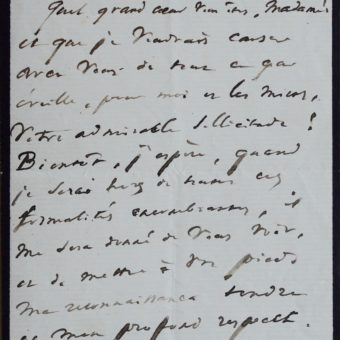 Quel grand cœur vous êtes, Madame!
et que je voudrais causer
avec vous de tout ce que
éveille, pour moi et les miens,
votre admirable sollicitude!
Bientôt, j'espère, quand
je serai hors de toutes ces
formalités encombrantes, il
me sera donné de vous voir,
et de mettre à vos pieds
ma reconnaissance tendre
et mon profond respect.